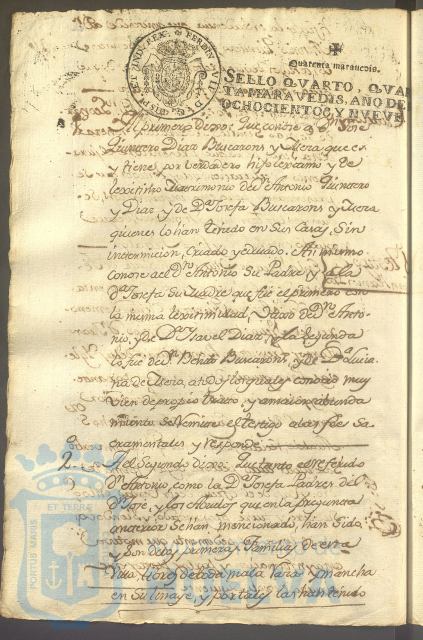 Quarenta maravedis.
SELLO QVARTO, QVAR
TA MARAVEDIS, AÑO DE
OCHOCIENTOS Y NVEVE
Al primero dixo: que conoce a Dn. Jose
Quintero Diaz Buscarons y Mera que es
y tiene por verdadero hijo lexitimo y de
lexitimo Matrimonio del Dn. Antonio Quintero
y Diaz, y de Da. Josefa Buscarons y Mera
quienes lo han tenido en sus Casas, sin
intermision, criado y educado: Asi mismo
conoce al Dn. Antonio su Padre y a la
Da. Josefa su Madre que fue el primero con
la misma lexitimidad, de Dn. Anto-
nio, y de Da. Isavel Diaz: y la segunda
lo fue de Dn. Benito Buscarons, y de Da. Lucia-
na de Mera, a todos los quales conocio muy
vien de propio trato y a mayor abunda
miento se remite el testigo a las fees Sa
cramentales y responde
2. Al segundo dixo: que tanto el referido
Dn. Antonio, como la Da. Josefa Padres del
Dn. Jose, y los Abuelos que en la pregunta
anterior se han mencionado, han sido
y son de las primeras Familias de esta
Villa, libres de toda mala raza y mancha
en su linaje, y por tales las han tenido
PORTUS MARIS ET TERRÆ